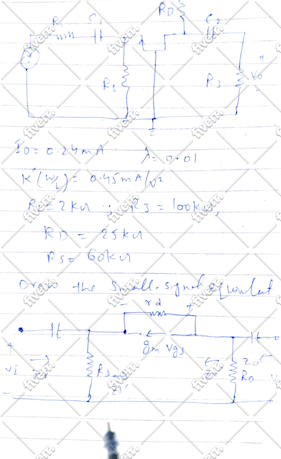 RD
R C1 C2
RS R3 Vo
+
-
ID = 0.24mA λ = 0.01
K'(W/L) = 0.45mA/V²
R = 2kΩ R3 = 100kΩ,
RD = 25kΩ
RS = 60kΩ
Draw the Small-signal equivalent
- rd +
gm Vgs
+
Vi RS RD
-
fiverr